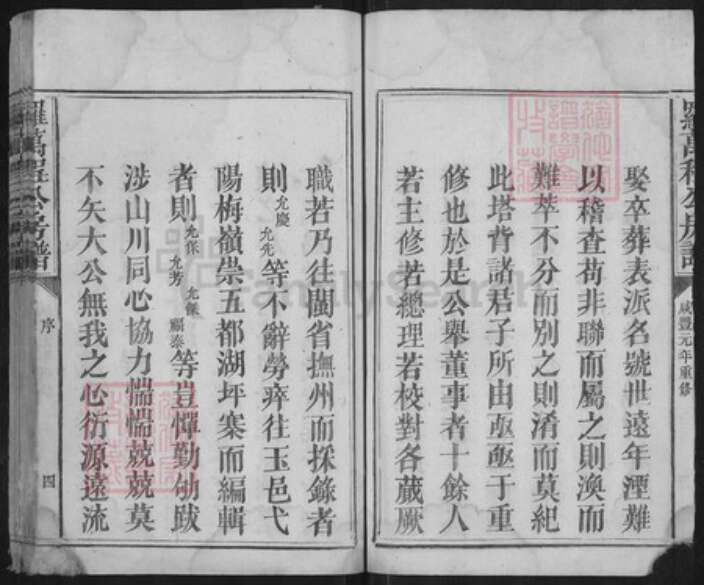 羅萬程公房譜
咸豐元年重修
娶卒葬表派名號世遠年湮難
以稽查茍非聯而屬之則渙而
難萃不分而別之則淆而莫紀
此塔背諸君子所由亟亟于重
修也於是公舉董事者十餘人
若主修若總理若校對各蕆厥
職若乃往閩省撫州而採錄者
則允慶允先等不辭勞瘁往玉邑弋
陽梅嶺崇五都湖坪寨而編輯
者則允保允芳允傑福泰等豈憚勤劬跋
涉山川同心協力惴惴兢兢莫
不矢大公無我之心衍源遠流
羅萬程公房譜
序
四
FamilySearch